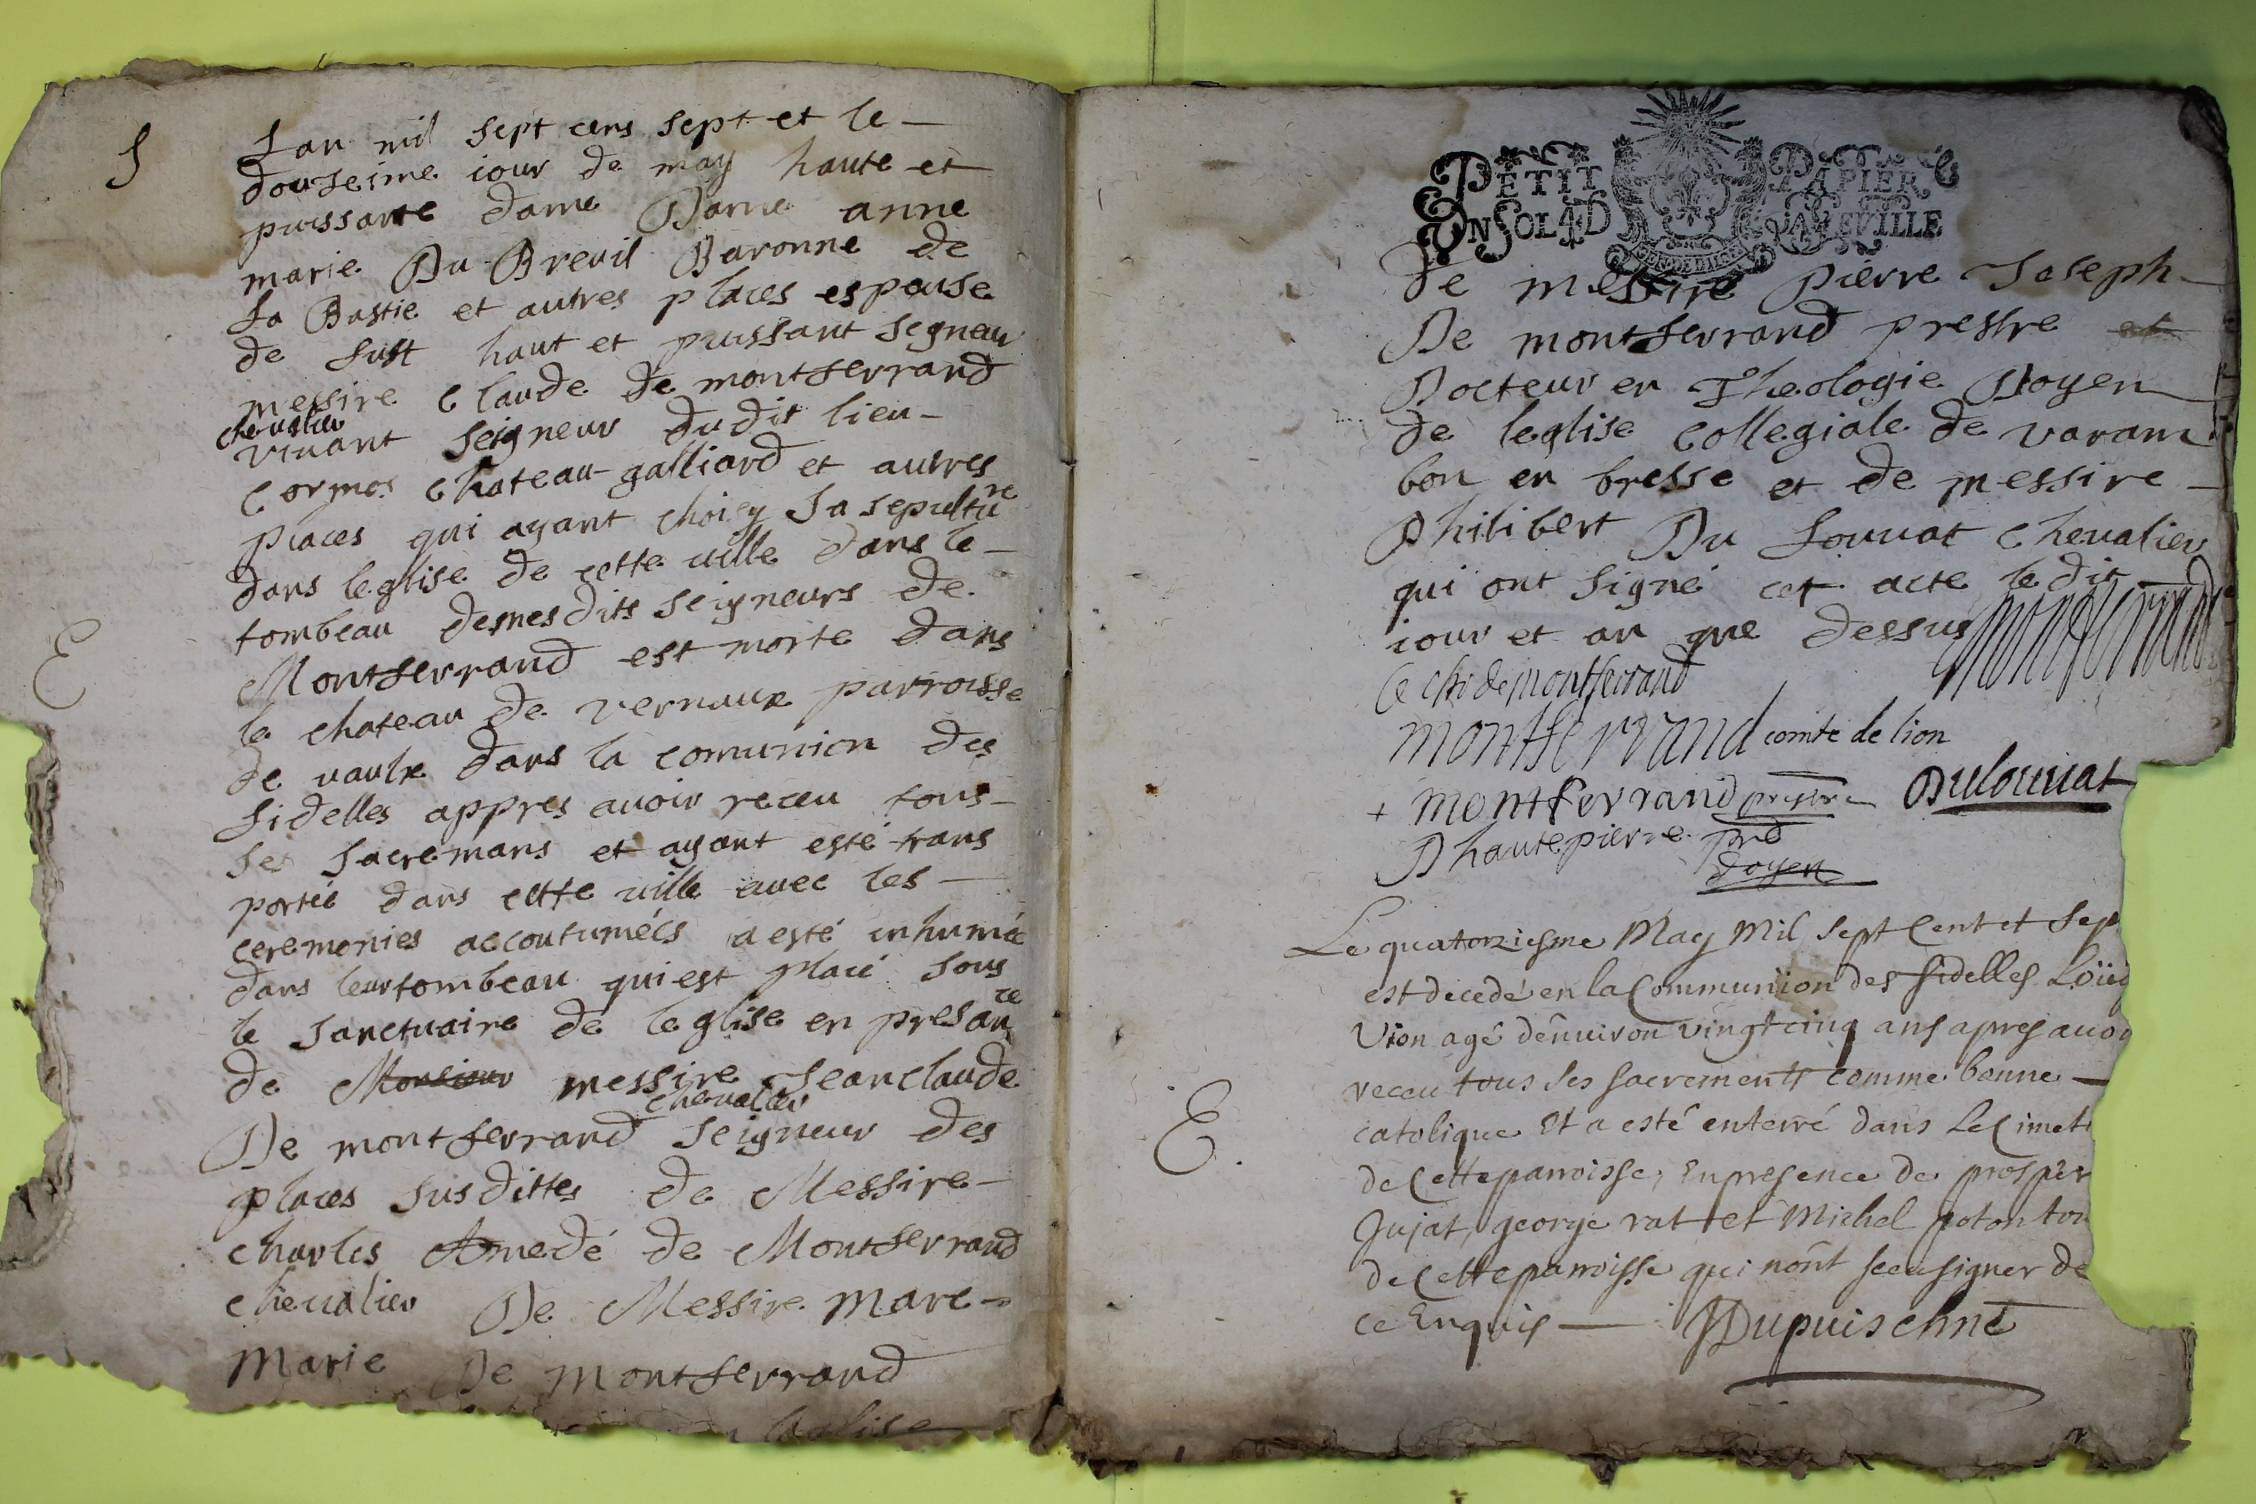 S
Lan mil sept cens sept et le -
douseime iour de may haute et
puissante dame Dame anne
marie Du Breuil Baronne de
La Bastie et autres places espouse
de fust haut et puissant segneur
messire Claude de montferrand
chevalier
vivant seigneur du dit lieu -
Cormos Chateau galliard et autres
places qui ayant choisy sa sepulture
dans leglise de cette ville dans le -
tombeau desmes dits seigneurs de
E
Montferrand est morte dans
le chateau de vernaux parroisse
de vaulx dans la comunion des
fidelles appres avoir receu tous -
les sacremans et ayant esté trans
portée dans cette ville avec les -
ceremonies accoutumées a esté inhumée
dans leur tombeau qui est placé sous
le sanctuaire de leglise en presance
de Monsieur messire Jean claude
chevalier
De montferrand seigneur des
places susdittes de Messire -
charles Amedé de Montferrand
chevalier De Messire Marc -
Marie De montferrand
leglise
PETIT PAPIER
UN SOL 4 D LA FEUILLE
De messire pierre Joseph -
De montferrand prestre et
Docteur en Theologie Doyen
de leglise collegiale de varam
bon en bresse et de messire -
Philibert Du Louvat chevalier
qui ont signé cet acte le dit
iour et an que dessus Montferrand
le chr de montferrand
montferrand comte de lion
+ montferrand prestre Dulouvat
D hautepierre pre
doyen
Le quatorziesme May Mil sept Cent et Sep
est decedé en la Communion des fidelles Loüis
Vion agé denuiron vingt cinq ans apres auoi
receu tous ses sacrements comme bonne -
E.
catolique Et a esté enterré dans Le Cimeti
de Cette parroisse, En presence de prosper
Jujat, george rat et Michel poton tou
de Cette parroisse qui nont sceu signer de
ce Enquis — JDupuis chne